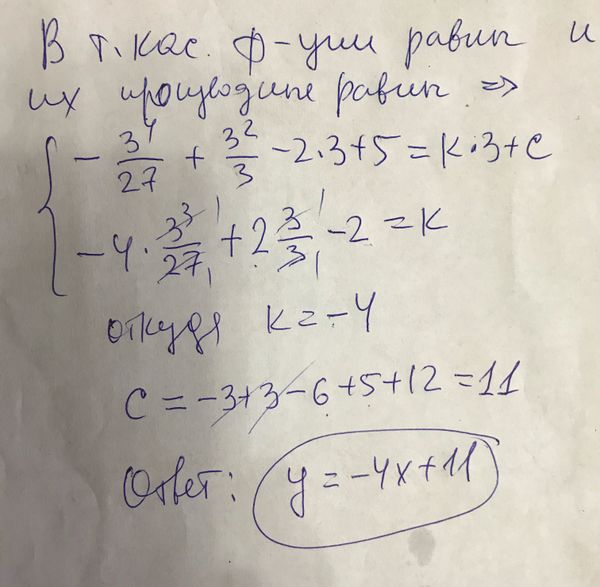 В т. кас. ф-ции равны и
их производные равны =>
{ - 3^4/27 + 3^2/3 - 2·3 + 5 = k·3 + c
-4 · 3^3/27 + 2 3/3 - 2 = k
откуда k = -4
c = -3 + 3 - 6 + 5 + 12 = 11
Ответ: y = -4x + 11